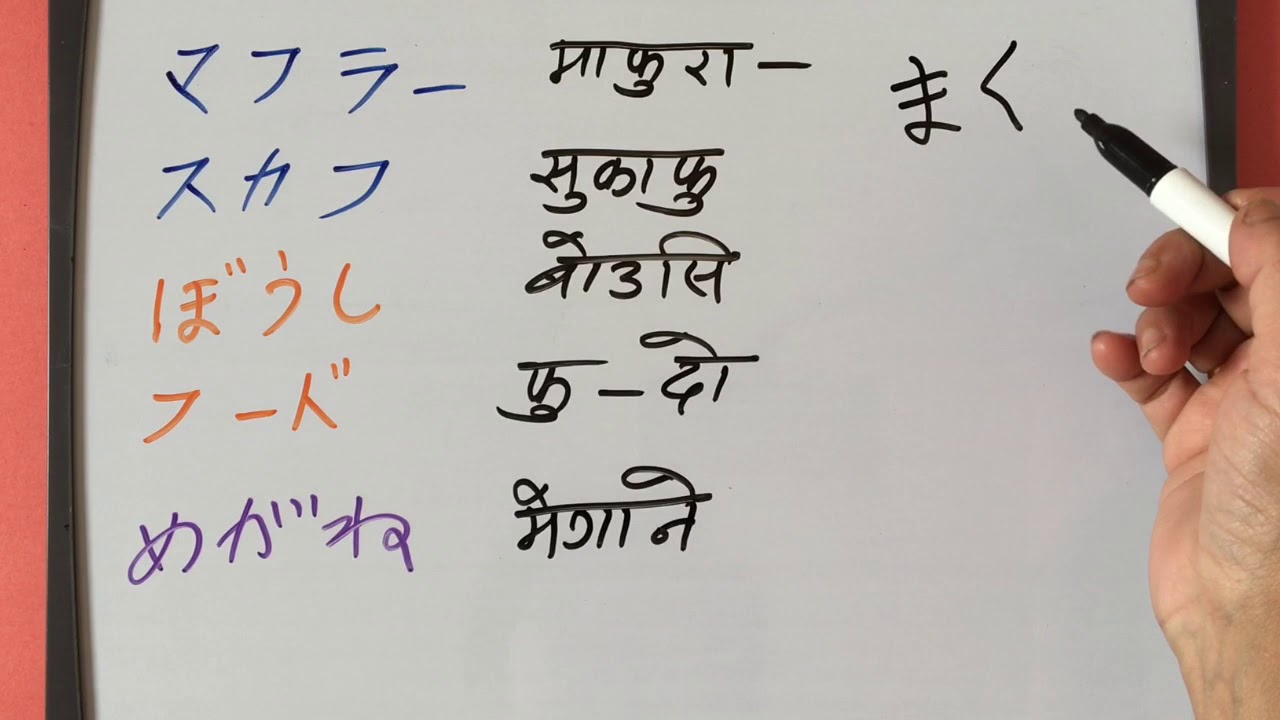 マフラー माफुरा- まく
スカフ सुकाफु
ぼうし बोउसि
フード फु-दो
めがね मेगाने